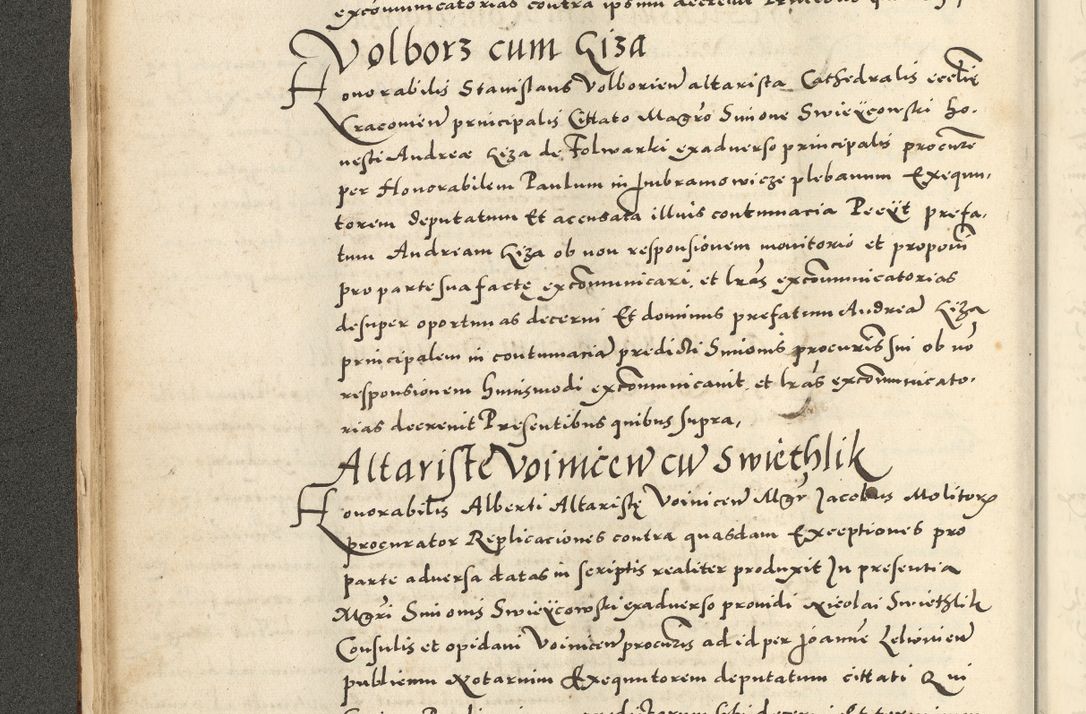 excommunicatorias contra ipsum decrevit
Volborz cum Giza
Honorabilis Stanislaus Volborien altarista Cathedralis ecclie
Cracovien principalis Cittato Magro Simone Swieÿcowski ho-
nesti Andreæ Giza de Folwarki exadverso principalis procure
per Honorabilem Paulum in Imbramowicze plebanum Exequu-
torem deputatum Et accusata illius contumacia Peeÿt prefa-
tum Andream Giza ob non responsionem monitorio et proponi
pro parte sua factę excommunicari, et lras excommunicatorias
desuper oportunas decerni Et dominus prefatum Andrea Giza
principalem in contumacia predicti Simonis procuris sui ob no
responsionem huiusmodi excommunicavit et lras excommunicato-
rias decrevit Presentibus quibus supra,
Altariste Voinicen cu Swiethlik
Honorabilis Alberti Altaristę Voinicen Mgr Jacobus Molitor
procurator Replicaciones contra quasdam Exceptiones pro
parte adversa datas in scriptis realiter produxit In presentia
Mgri Simonis Swieÿcowski exadverso providi Nicolai Swiethlik
Consulis et opidani Voinicen procuris ad id per Joanne Lelowien
publicum Notarium Exequutorem deputatum cittati Qui